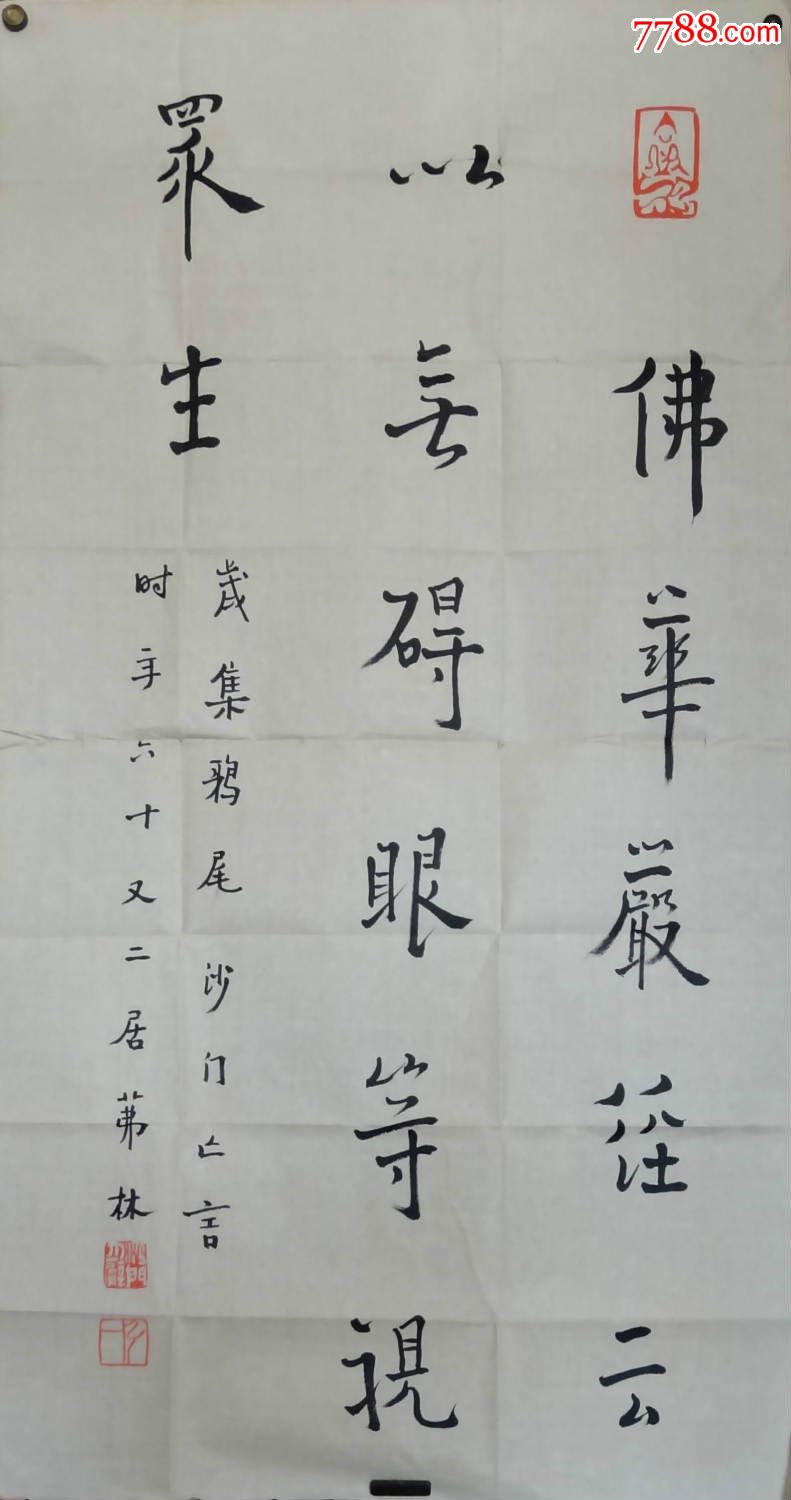 7788.com
佛華嚴經云
以无碍眼等視
眾生
歲集鶉尾 沙门亡言
时年六十又二居茀林